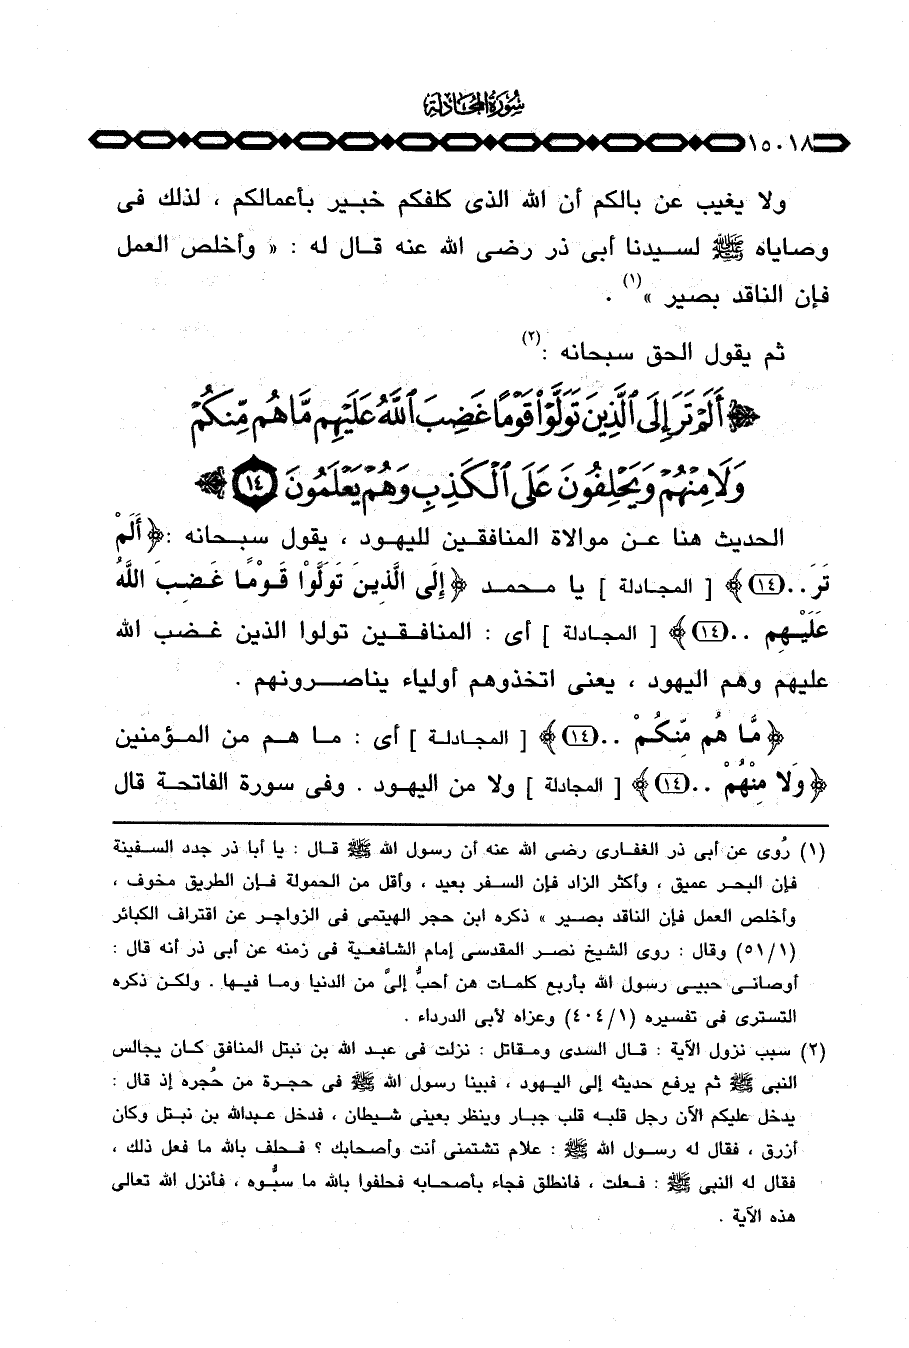 سورة المجادلة
١٥٠١٨
ولا يغيب عن بالكم أن الله الذى كلفكم خبير بأعمالكم ، لذلك فى
وصاياه ﷺ لسيدنا أبى ذر رضى الله عنه قال له : « وأخلص العمل
فإن الناقد بصير »(١) .
ثم يقول الحق سبحانه :(٢)
﴿ أَلَمْ تَرَ إِلَى ٱلَّذِينَ تَوَلَّوْا۟ قَوْمًا غَضِبَ ٱللَّهُ عَلَيْهِم مَّا هُم مِّنكُمْ
وَلَا مِنْهُمْ وَيَحْلِفُونَ عَلَى ٱلْكَذِبِ وَهُمْ يَعْلَمُونَ ١٤ ﴾
الحديث هنا عن موالاة المنافقين لليهود ، يقول سبحانه : ﴿ أَلَمْ
تَرَ ..(١٤) ﴾ [ المجادلة ] يا محمد ﴿ إِلَى الَّذِينَ تَوَلَّوْا قَوْمًا غَضِبَ اللَّهُ
عَلَيْهِم ..(١٤) ﴾ [ المجادلة ] أى : المنافقين تولوا الذين غضب الله
عليهم وهم اليهود ، يعنى اتخذوهم أولياء يناصرونهم .
﴿ مَّا هُم مِّنكُمْ ..(١٤) ﴾ [ المجادلة ] أى : ما هم من المؤمنين
﴿ وَلا مِنْهُمْ ..(١٤) ﴾ [ المجادلة ] ولا من اليهود . وفى سورة الفاتحة قال
(١) رُوى عن أبى ذر الغفارى رضى الله عنه أن رسول الله ﷺ قال : يا أبا ذر جدد السفينة
فإن البحر عميق ، وأكثر الزاد فإن السفر بعيد ، وأقل من الحمولة فإن الطريق مخوف ،
وأخلص العمل فإن الناقد بصير » ذكره ابن حجر الهيتمى فى الزواجر عن اقتراف الكبائر
(٥١/١) وقال : روى الشيخ نصر المقدسى إمام الشافعية فى زمنه عن أبى ذر أنه قال :
أوصانى حبيبى رسول الله بأربع كلمات هن أحبُّ إلىَّ من الدنيا وما فيها . ولكن ذكره
التسترى فى تفسيره (٤٠٤/١) وعزاه لأبى الدرداء .
(٢) سبب نزول الآية : قال السدى ومقاتل : نزلت فى عبد الله بن نبتل المنافق كان يجالس
النبى ﷺ ثم يرفع حديثه إلى اليهود ، فبينا رسول الله ﷺ فى حجرة من حُجره إذ قال :
يدخل عليكم الآن رجل قلبه قلب جبار وينظر بعينى شيطان ، فدخل عبدالله بن نبتل وكان
أزرق ، فقال له رسول الله ﷺ : علام تشتمنى أنت وأصحابك ؟ فحلف بالله ما فعل ذلك ،
فقال له النبى ﷺ : فعلت ، فانطلق فجاء بأصحابه فحلفوا بالله ما سبُّوه ، فأنزل الله تعالى
هذه الآية .